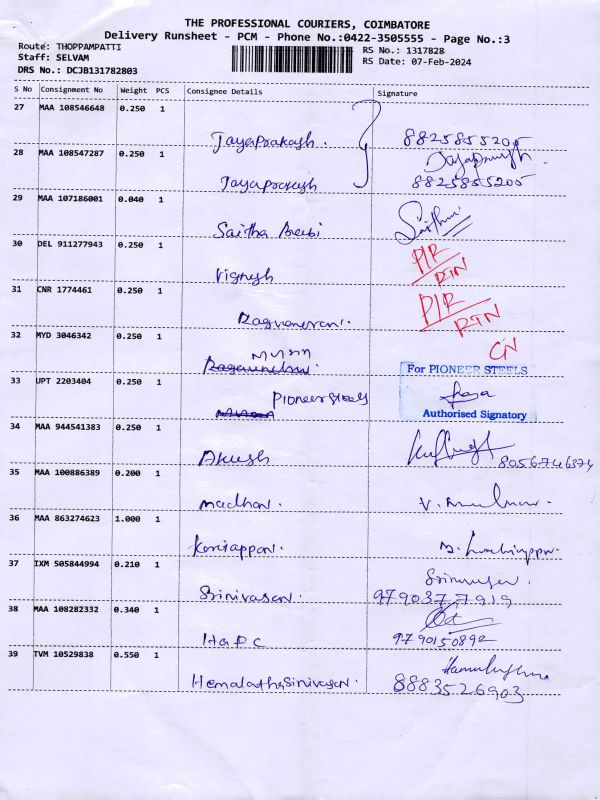 THE PROFESSIONAL COURIERS, COIMBATORE
Delivery Runsheet - PCM - Phone No.:0422-3505555 - Page No.:3
Route: THOPPAMPATTI
RS No.: 1317828
Staff: SELVAM
RS Date: 07-Feb-2024
DRS No.: DCJB131782803
S No Consignment No Weight PCS Consignee Details Signature
27 MAA 108546648 0.250 1
Jayaprakash. 8825855205
28 MAA 108547287 0.250 1
Jayaprakash 8825855205
29 MAA 107186001 0.040 1
Saitha
30 DEL 911277943 0.250 1
Vignesh P/R RTN
31 CNR 1774461 0.250 1
P/R RTN
32 MYD 3046342 0.250 1
CN
33 UPT 2203404 0.250 1
For PIONEER STEELS
Pioneer Steels
Authorised Signatory
34 MAA 944541383 0.250 1
Akash 8056746374
35 MAA 100886389 0.200 1
Madhan.
36 MAA 863274623 1.000 1
37 IXM 505844994 0.210 1
Srinivasan. 9790377919
38 MAA 108282332 0.340 1
9790150892
39 TVM 10529838 0.550 1
Hemalatha Srinivasan. 8883526903